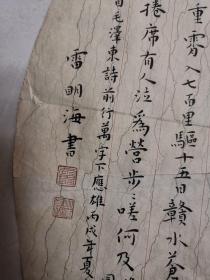 重霄入七百里驅十五日贛水蒼
捲席有人泣為營步〻嗟何及
毛澤東詩前行萬字下應雄丙戌年夏
雷明海書